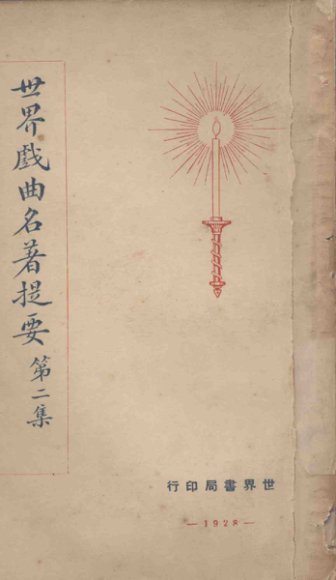 世界戲曲名著提要 第二集
世界書局印行
—1928—